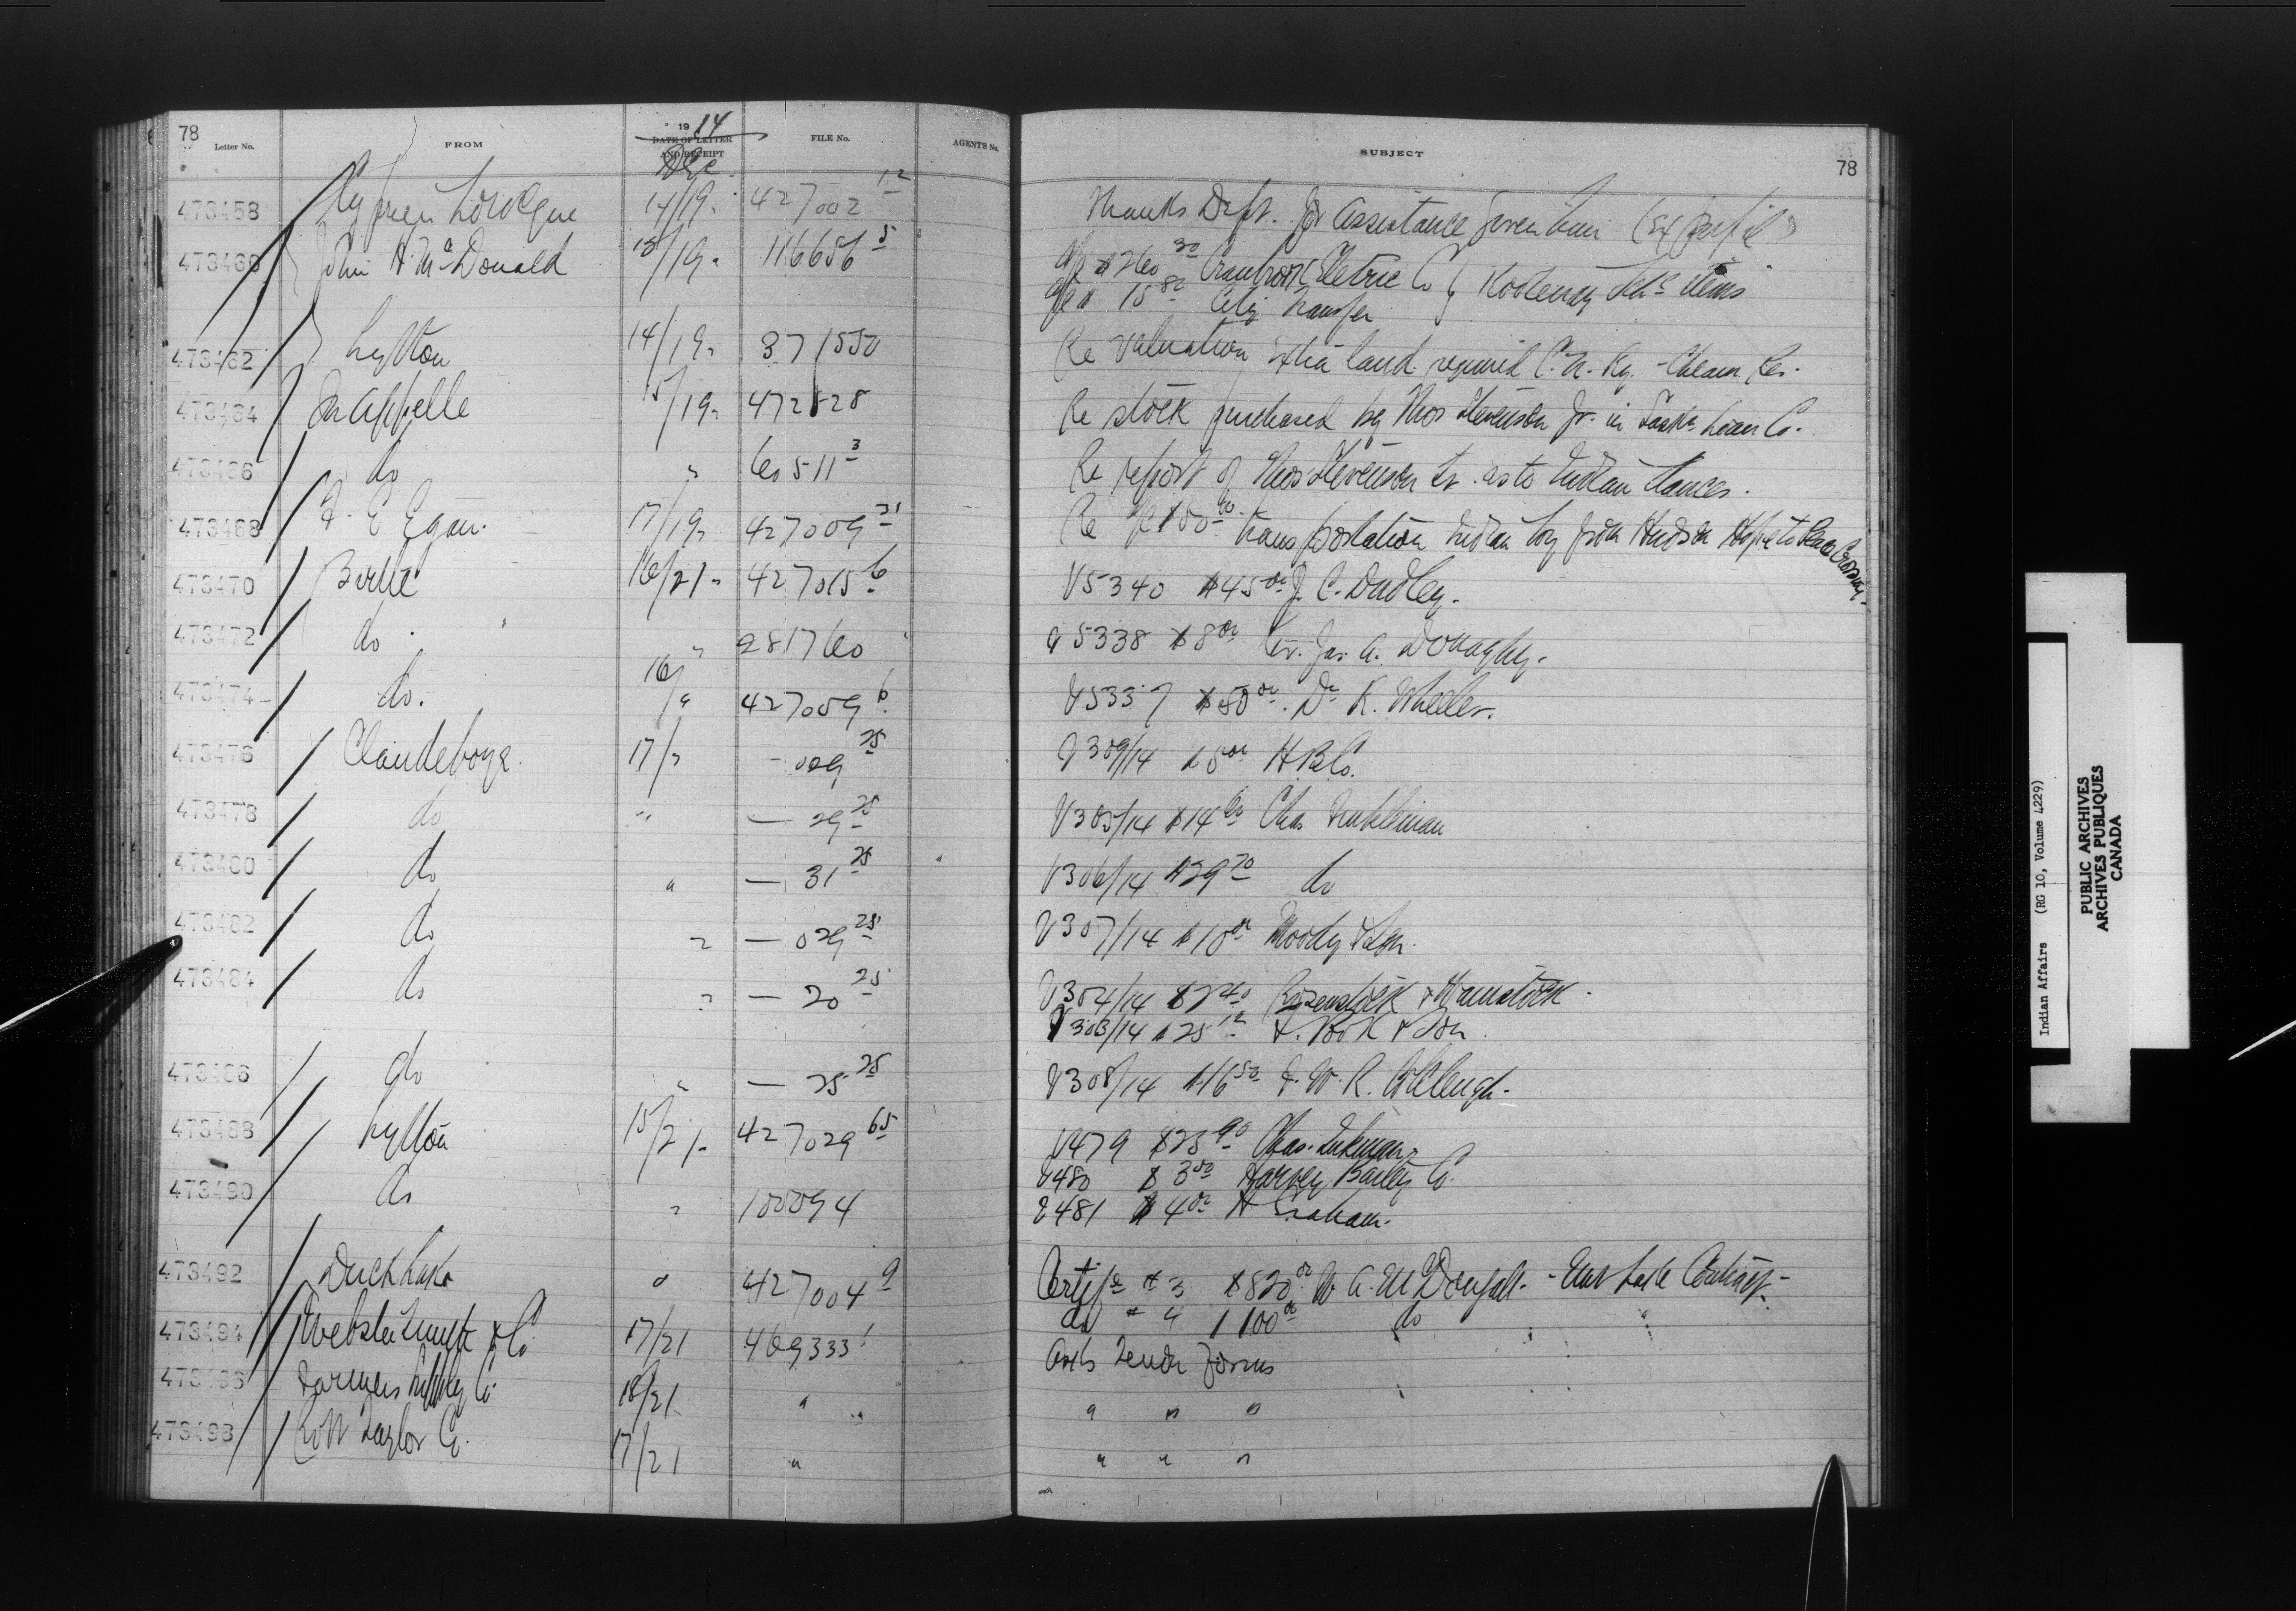 78
Letter No.
FROM
1914
DATE OF LETTER
AND RECEIPT
Dec
FILE No.
AGENT'S No.
SUBJECT
78
473458 14/19. 427002 12 Thanks Dept. for assistance given him (Ex pupil)
473460 John H. McDonald 15/19. 116656 5 a/c $260 30 Cranbrook Eletric Co } Kootenay Schl items
a/c $ 15 80 City Transfer
473462 Lytton 14/19. 371550 Re valuation extra land required C.N. Ry. - Cheam Res.
473464 Qu'Appelle 15/19. 472828 Re stock purchased by Thos Stevenson Jr. in Saskn Loan Co.
473466 do " 60511 3 Re report of Thos Stevenson Sr. as to Indian dances.
473468 F. E Egan. 17/19. 427009 31 Re a/c transportation Indian boy from Hudson Hope to Peace Crossing.
473470 Birtle 16/21. 427015 6 V5340 $45 00 J. C. Dudley.
473472 do. " 281760 V5338 $8 00 Rev. Jas. A. Donaghy.
473474 do. 16/" 427059 6 V5337 $50 00. Dr R. Wheeler.
473476 Clandeboye. 17/" - 029 25 V309/14 $5 00 H.B.Co.
473478 do " — 29 25 V305/14 $14 60 Chas
473480 do " — 31 25 V306/14 $29 70 do
473482 do " — 029 25 V307/14 $10 00 Moody & Son.
473484 do " — 20 25 V304/14 $2 40 Rosenstock & Wainstock.
V303/14 $25 12 & Son.
473486 do " — 25 25 V308/14 $16 50 F. W. R. Colcleugh.
473488 Lytton 15/21. 427029 65 V479 $25 90 Chas.
V480 $ 3 50 Harvey Bailey Co.
473490 do " 100094 V481 $ 4 00 H Graham.
473492 Duck Lake " 427004 9 Certif. # 3 $820 00 W. A. McDougall. - Contract -
do # 4 1100 00 do "
473494 & Co. 17/21 469333 1 Asks Tender forms
473496 Farmers Supply Co. 18/21 " " " "
473498 Taylor Co. 17/21 " " " "
Indian Affairs (RG 10, Volume 4229)
PUBLIC ARCHIVES
ARCHIVES PUBLIQUES
CANADA